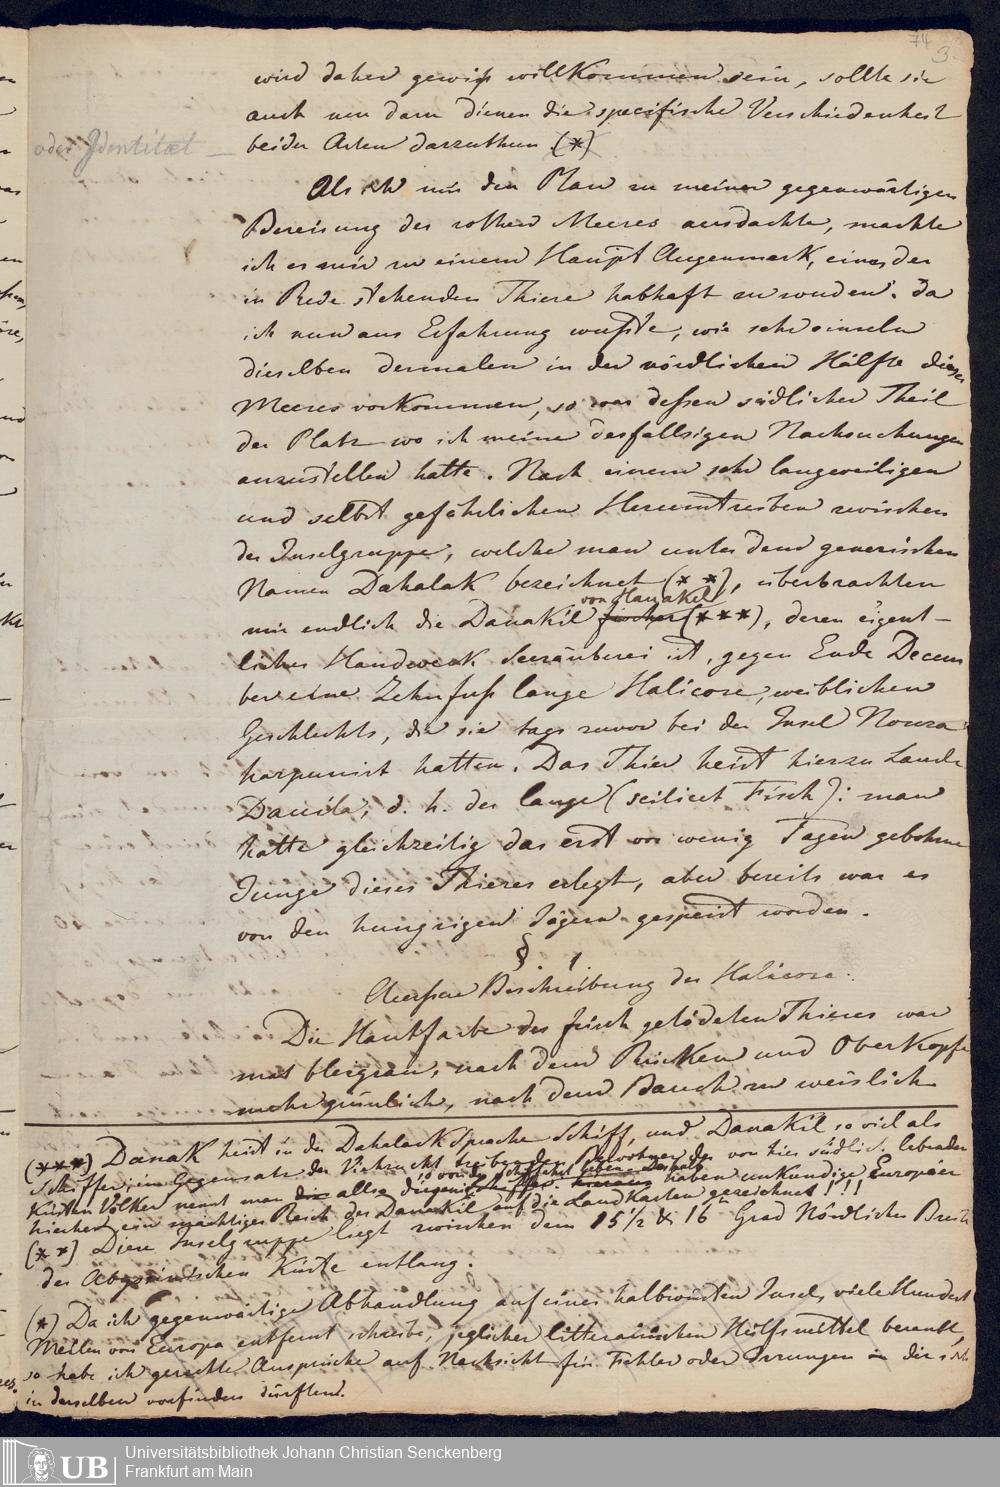 74
3.
wird daher gewiß willkommen sein, sollte sie
auch nur darzu dienen die specifische Verschiedenheit
oder Identitæt —
beider Arten darzuthun (*)
Als ich mir den Plan zu meiner gegenwärtigen
Bereisung des rothen Meeres ausdachte, machte
ich es mir zu einem Haupt Augenmerk, eines der
in Rede stehenden Thiere habhaft zu werden. Da
ich nun aus Erfahrung wußte, wie sehr einzeln
dieselben dermalen in der nördlichen Hälfte dieses
Meeres vorkommen, so war dessen südlicher Theil
der Platz wo ich meine desfallsigen Nachsuchungen
anzustellen hatte. Nach einem sehr langweiligen
und selbst gefährlichen Herumtreiben zwischen
der Inselgruppe, welche man unter dem generischen
Namen Dahalak bezeichnet (* *), überbrachten
von Hauakel
mir endlich die Danakil fischer (***), deren eigent-
liches Handwerk Seeräuberei ist, gegen Ende Decem
ber eine Zehn fuß lange Halicore, weiblichen
Geschlechts, die sie tags zuvor bei der Insel Noura
harpunirt hatten. Das Thier heist hierzu Lande
Dauila, d. h. der lange (scilicet Fisch): man
hatte gleichzeitig das erst vor wenig Tagen gebohrne
Junge dieses Thieres erlegt, aber bereits war es
von den hungrigen Jägern gespeist worden.
§. 1
Aeußere Beschreibung der Halicore.
Die Hautfarbe des frisch getödeten Thieres war
mat bleigrau, nach dem Rücken und Oberkopfe
mehr grünlich, nach dem Bauch zu weislich
(***) Danak heist in der Dahalack Sprache Schiff, und Danakil so viel als
Schiffer, im Gegensatz der Viehzucht treibenden Bewohner der von hier südlich lebenden
Küsten Völker nennt man die alle diejenigen so von Schiffahrt leben. Deshalb haben unkundige Europäer
hierher ein mächtiges Reich der Danakil auf die Landkarten gezeichnet!!!
(* *) Diese Inselgruppe liegt zwischen dem 15 1/2 & 16 Grad Nördlicher Breite
der Abyssinischen Küste entlang.
(*) Da ich gegenwärtige Abhandlung auf einer halbwüsten Insel, viele Hundert
Meilen von Europa entfernt schreibe, jeglicher litterarischen Hülfsmittel beraubt,
so habe ich gerechte Ansprüche auf Nachsicht für Fehler oder Irrungen die sich
in derselben vorfinden dürften.
UB
Universitätsbibliothek Johann Christian Senckenberg
Frankfurt am Main